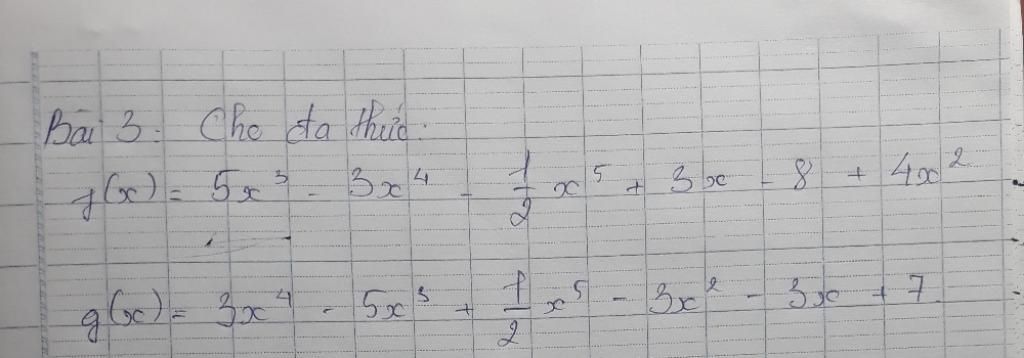 Bài 3: Cho đa thức:
f(x) = 5x³ - 3x⁴ - 1/2 x⁵ + 3x - 8 + 4x²
g(x) = 3x⁴ - 5x³ + 1/2 x⁵ - 3x² - 3x + 7